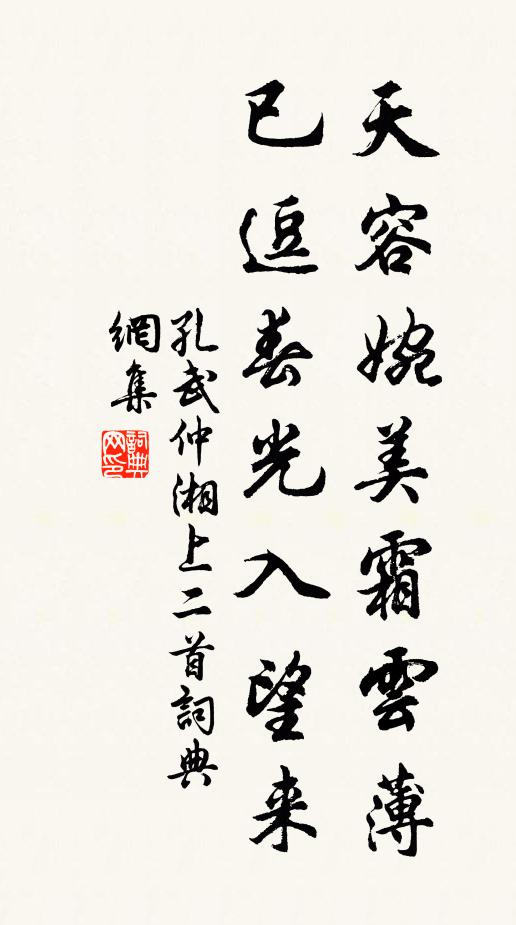 天容婉美霜雲薄
已逗春光入望来
孔武仲湘上二首詞典
網集
詞典网印